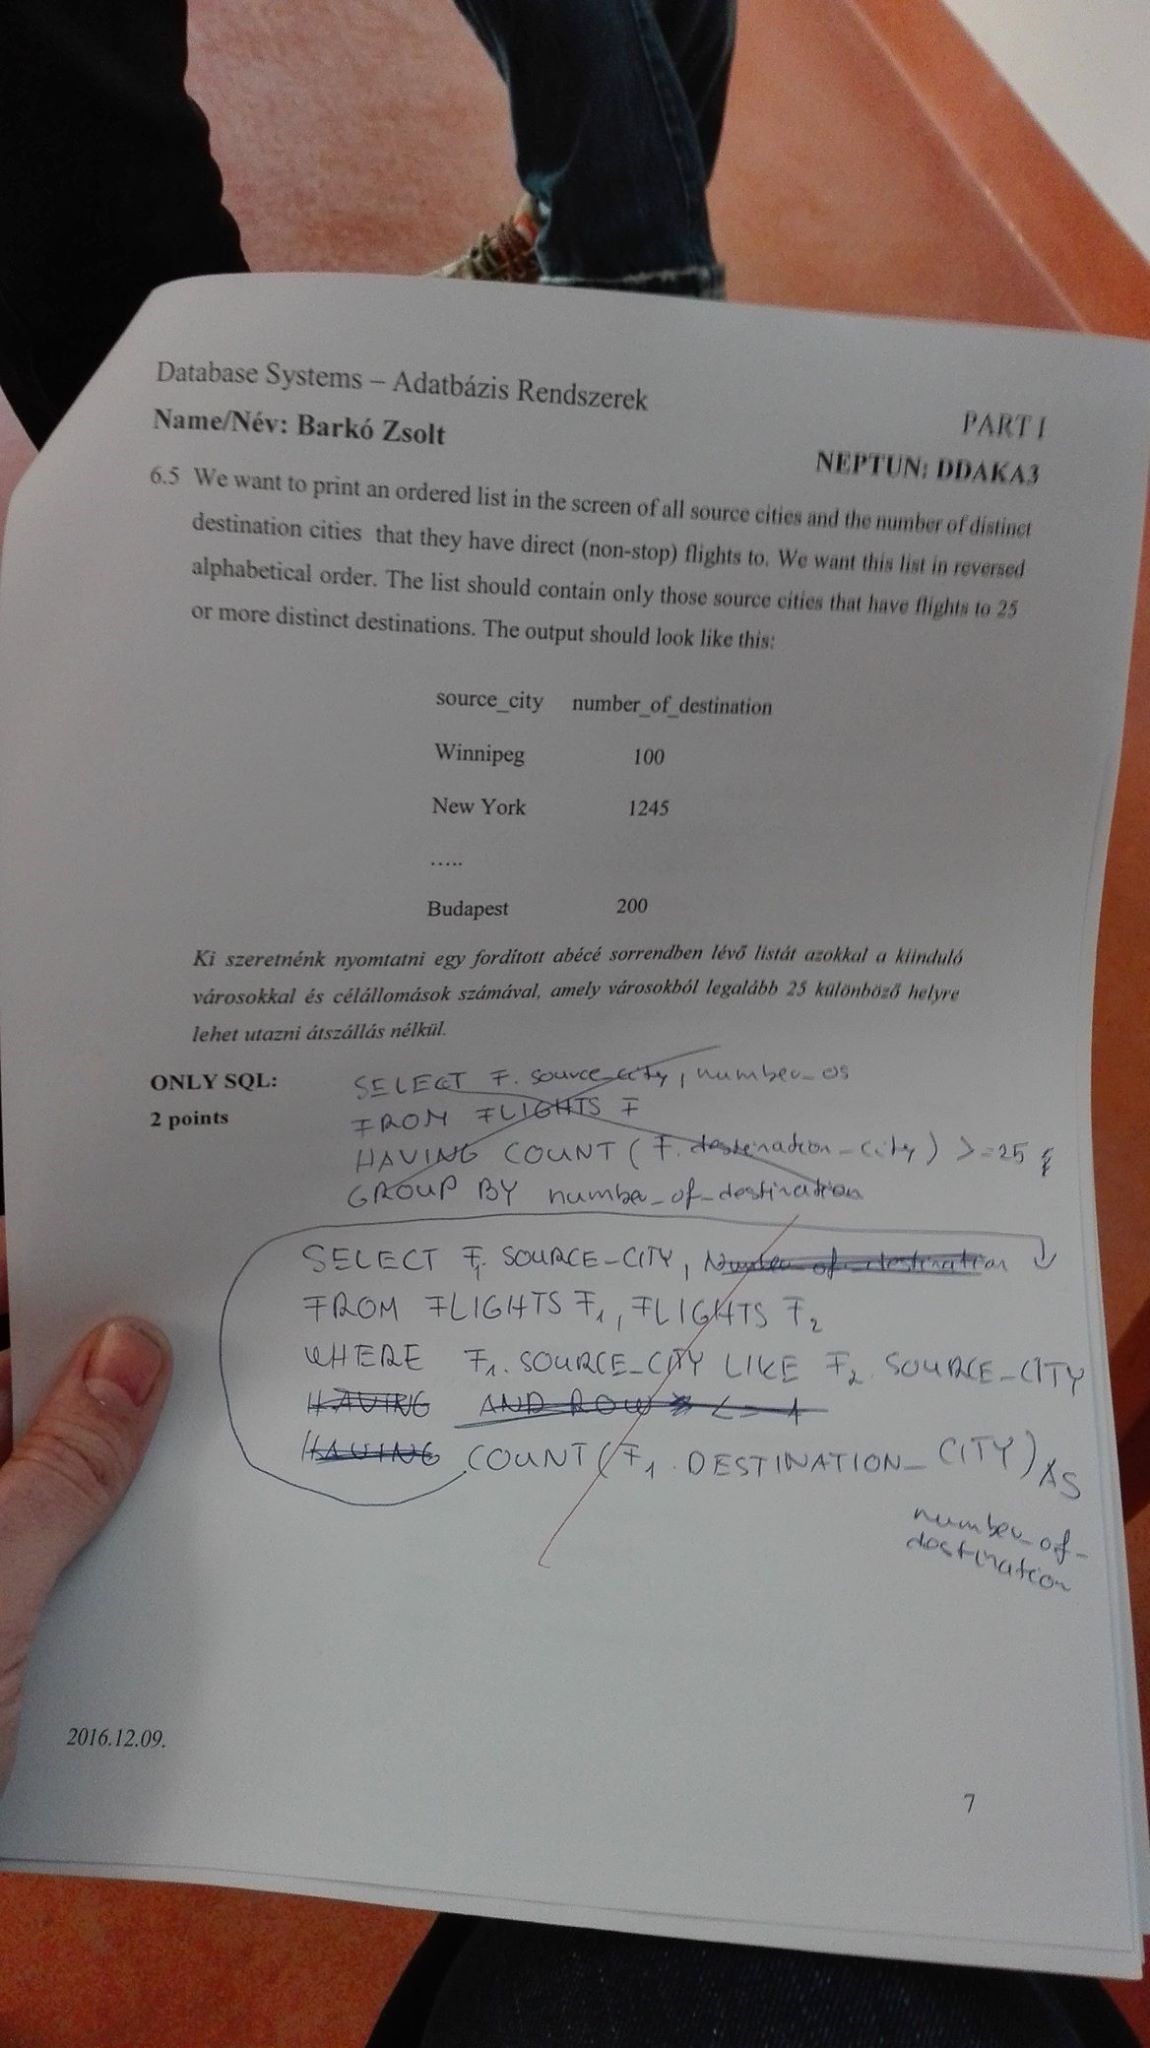 Database Systems – Adatbázis Rendszerek
PART I
Name/Név: Barkó Zsolt
NEPTUN: DDAKA3
6.5 We want to print an ordered list in the screen of all source cities and the number of distinct
destination cities that they have direct (non-stop) flights to. We want this list in reversed
alphabetical order. The list should contain only those source cities that have flights to 25
or more distinct destinations. The output should look like this:
source_city number_of_destination
Winnipeg 100
New York 1245
.....
Budapest 200
Ki szeretnénk nyomtatni egy fordított abécé sorrendben lévő listát azokkal a kiinduló
városokkal és célállomások számával, amely városokból legalább 25 különböző helyre
lehet utazni átszállás nélkül.
ONLY SQL:
2 points
SELECT F. source_city, number_os
FROM FLIGHTS F
HAVING COUNT (F. destination_city) >=25
GROUP BY number_of_destination
SELECT F1 SOURCE_CITY, Number_of_destination
FROM FLIGHTS F1, FLIGHTS F2
WHERE F1. SOURCE_CITY LIKE F2. SOURCE_CITY
HAVING AND ROW <= 1
HAVING COUNT (F1. DESTINATION_CITY) AS
number_of_
destination
2016.12.09.
7